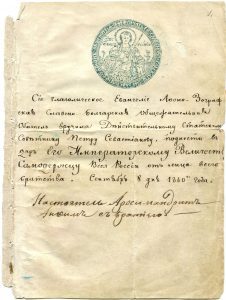 Сіе глаголическое Евангеліе Аѳоно-Зограф-
ская Славено-Болгарская общежительная
Обитель вручила Дѣйствительному Статскому
Совѣтнику Петру Севастіанову, поднести въ
даръ Его Императорскому Величеству
Самодержцу Всея Россіи отъ лица всего
братства. Сентября 8 дня 1860 года.
Настоятель Архимандритъ
Анѳимъ съ братіею